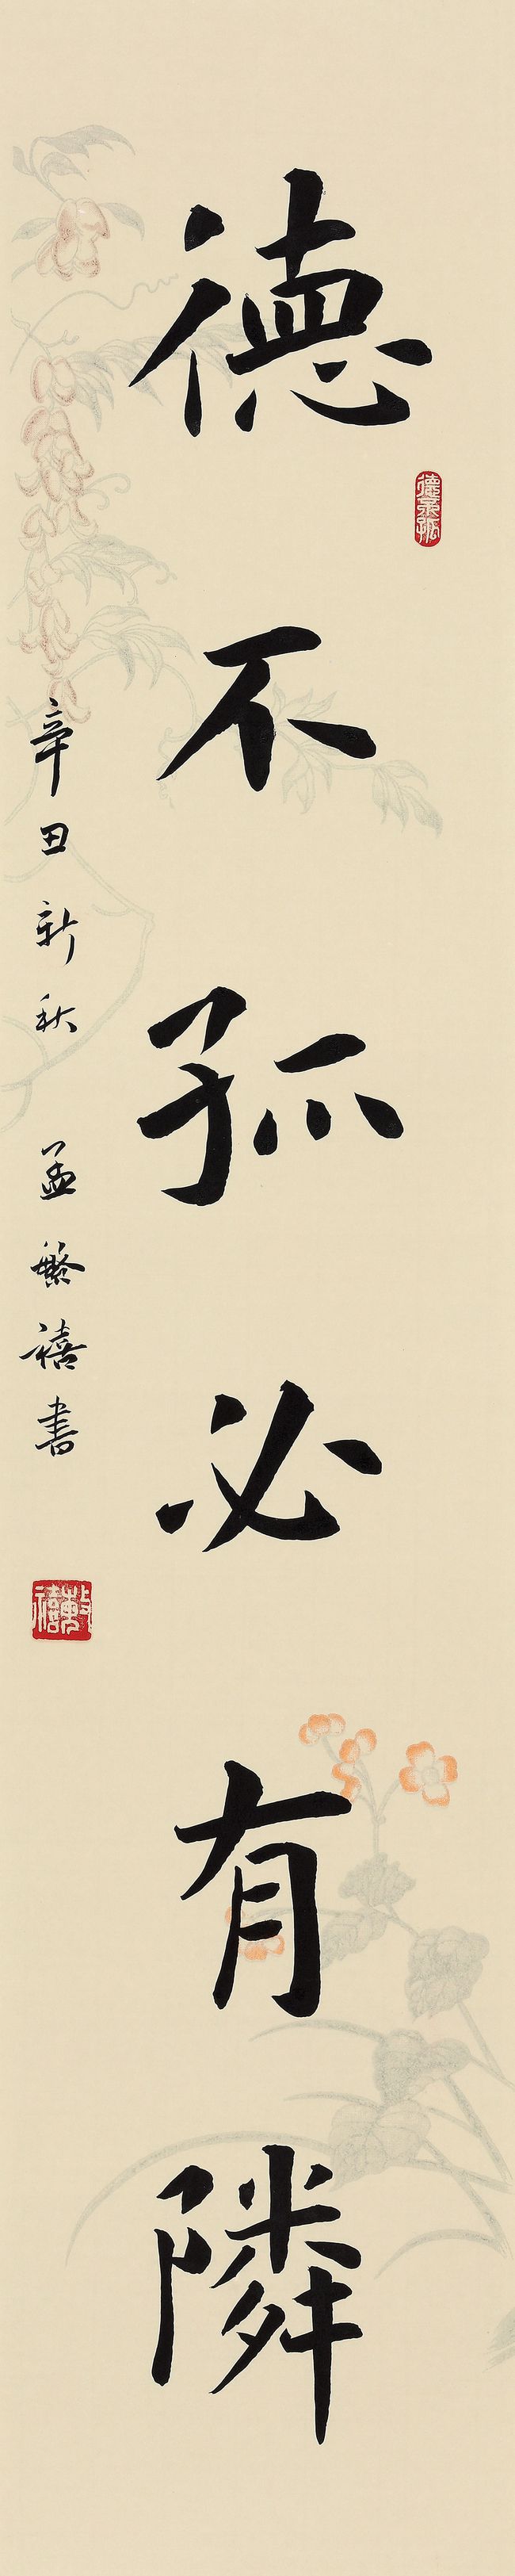 德不孤必有隣
德不孤
辛丑新秋 孟繁禧書
繁禧